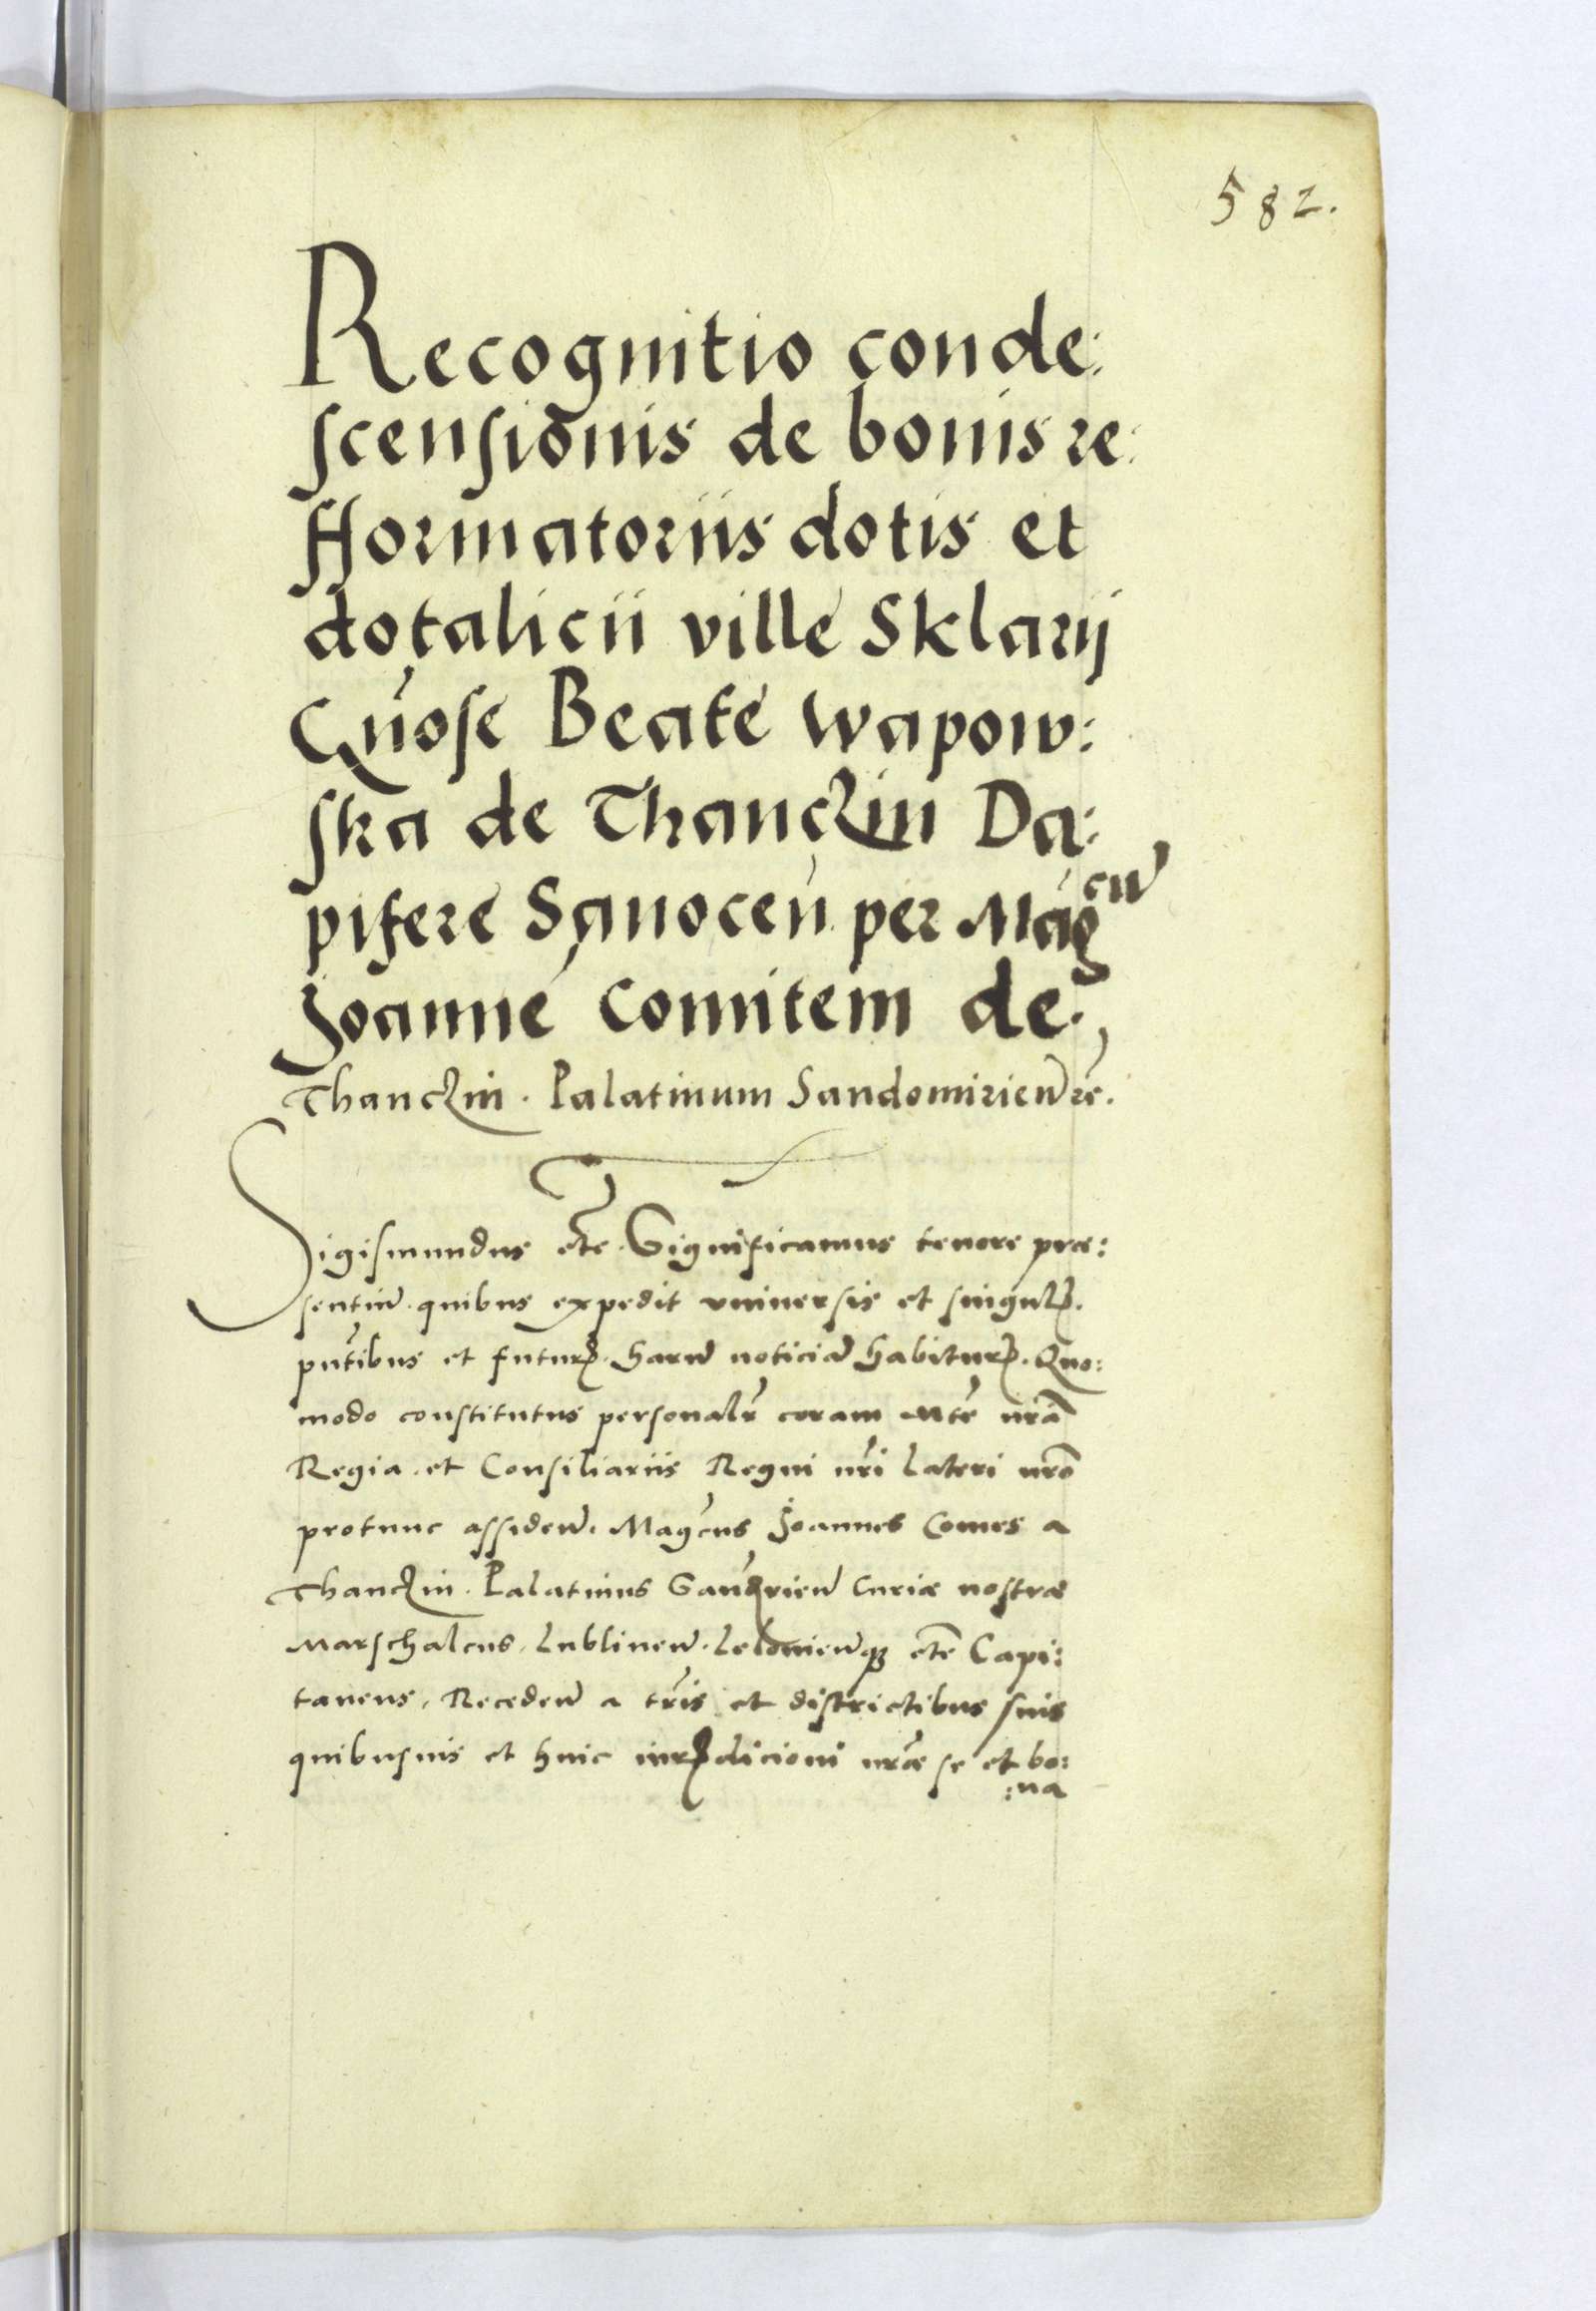 582.
Recognitio conde:
scensionis de bonis re:
fformatoriis dotis et
dotalicii ville Sklarij
Gn̄ose Beate Wapow:
ska de Thanczin Da:
pifere Sanoceñ per Magcū
Joannē Comitem de
Thanczin. Palatinum Sandomirieñ
Sigismundus etc̄. Significamus tenore præ:
sentiū. quibus expedit vniuersis et singul.
pn̄tibus et futur. harū noticiā habitur. Quo:
modo constitutus personalr̄ coram Mte nr̄a
Regia. et Consiliariis Regni nr̄i lateri nr̄o
protunc assideñ. Magcus Joannes Comes a
Thanczin. Palatinus Curiæ nostræ
Marschalcus. Lublineñ. etc̄ Capi:
taneus. Recedeñ a tr̄is et districtibus suis
quibusuis et huic iurisdicioni nr̄æ se et bo:
:na